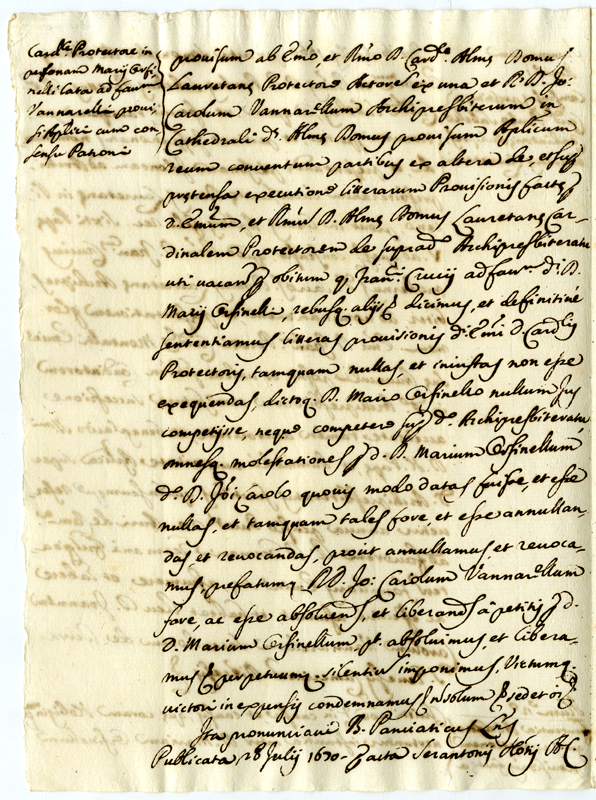 Card.le Protectore in
personam Marij Orfi-
nelli lata ad fau.rem
Vannarelli provi-
si Ap̃lici cum con-
sensu Patroni
provisum ab Em̃o, et Rm̃o D. Card.e Almę Domus
Lauretanę Protectore Actorẽ ex una et R. D. Jo:
Carolum Vannarellum Archipresbiterum in
Cathedrali d.ę Almę Domus provisum Ap̃licum
reum conventum partibus ex altera de, et sup.
prętensa executione litterarum Provisionis factę p
d. Em̃um, et Rm̃u D. Almę Domus Lauretanę Car-
dinalem Protectorem de suprad.o Archipresbiteratu
uti vacan p obitum q. Fran.ci Crucij ad fau.rem d.i D.
Marij Orfinelli, rebusq. alijs p dicimus, et definitivè
sententiamus litteras provisionis d.i Em̃i D Card.lis
Protectoris, tamquam nullas, et iniustas non esse
exequendas, dictoq. D. Mario Orfinello nullum Jus
competijsse, neque competere sup. d.o Archipresbiteratu,
omnesq. molestationes p d. D. Marium Orfinellum
d.o D. Jõi Carolo quovis modo datas fuisse, et esse
nullas, et tamquam tales fore, et esse annullan-
das, et revocandas, prout annullamus, et revoca-
mus, prefatumq. R. D. Jo: Carolum Vannarellum
fore, ac esse absolvend., et liberand. à petitis p d.
D. Marium Orfinellum, pt. absolvimus, et libera-
mus p perpetuumq. silentiũ imponimus, Victumq.
victori in expensis condemnamus p non solum p sed et oĩ p
Ita pronunciavi B. Panciaticus
Publicata 28 Julij 1670 - Acta Serantonij Not.rij A.C.